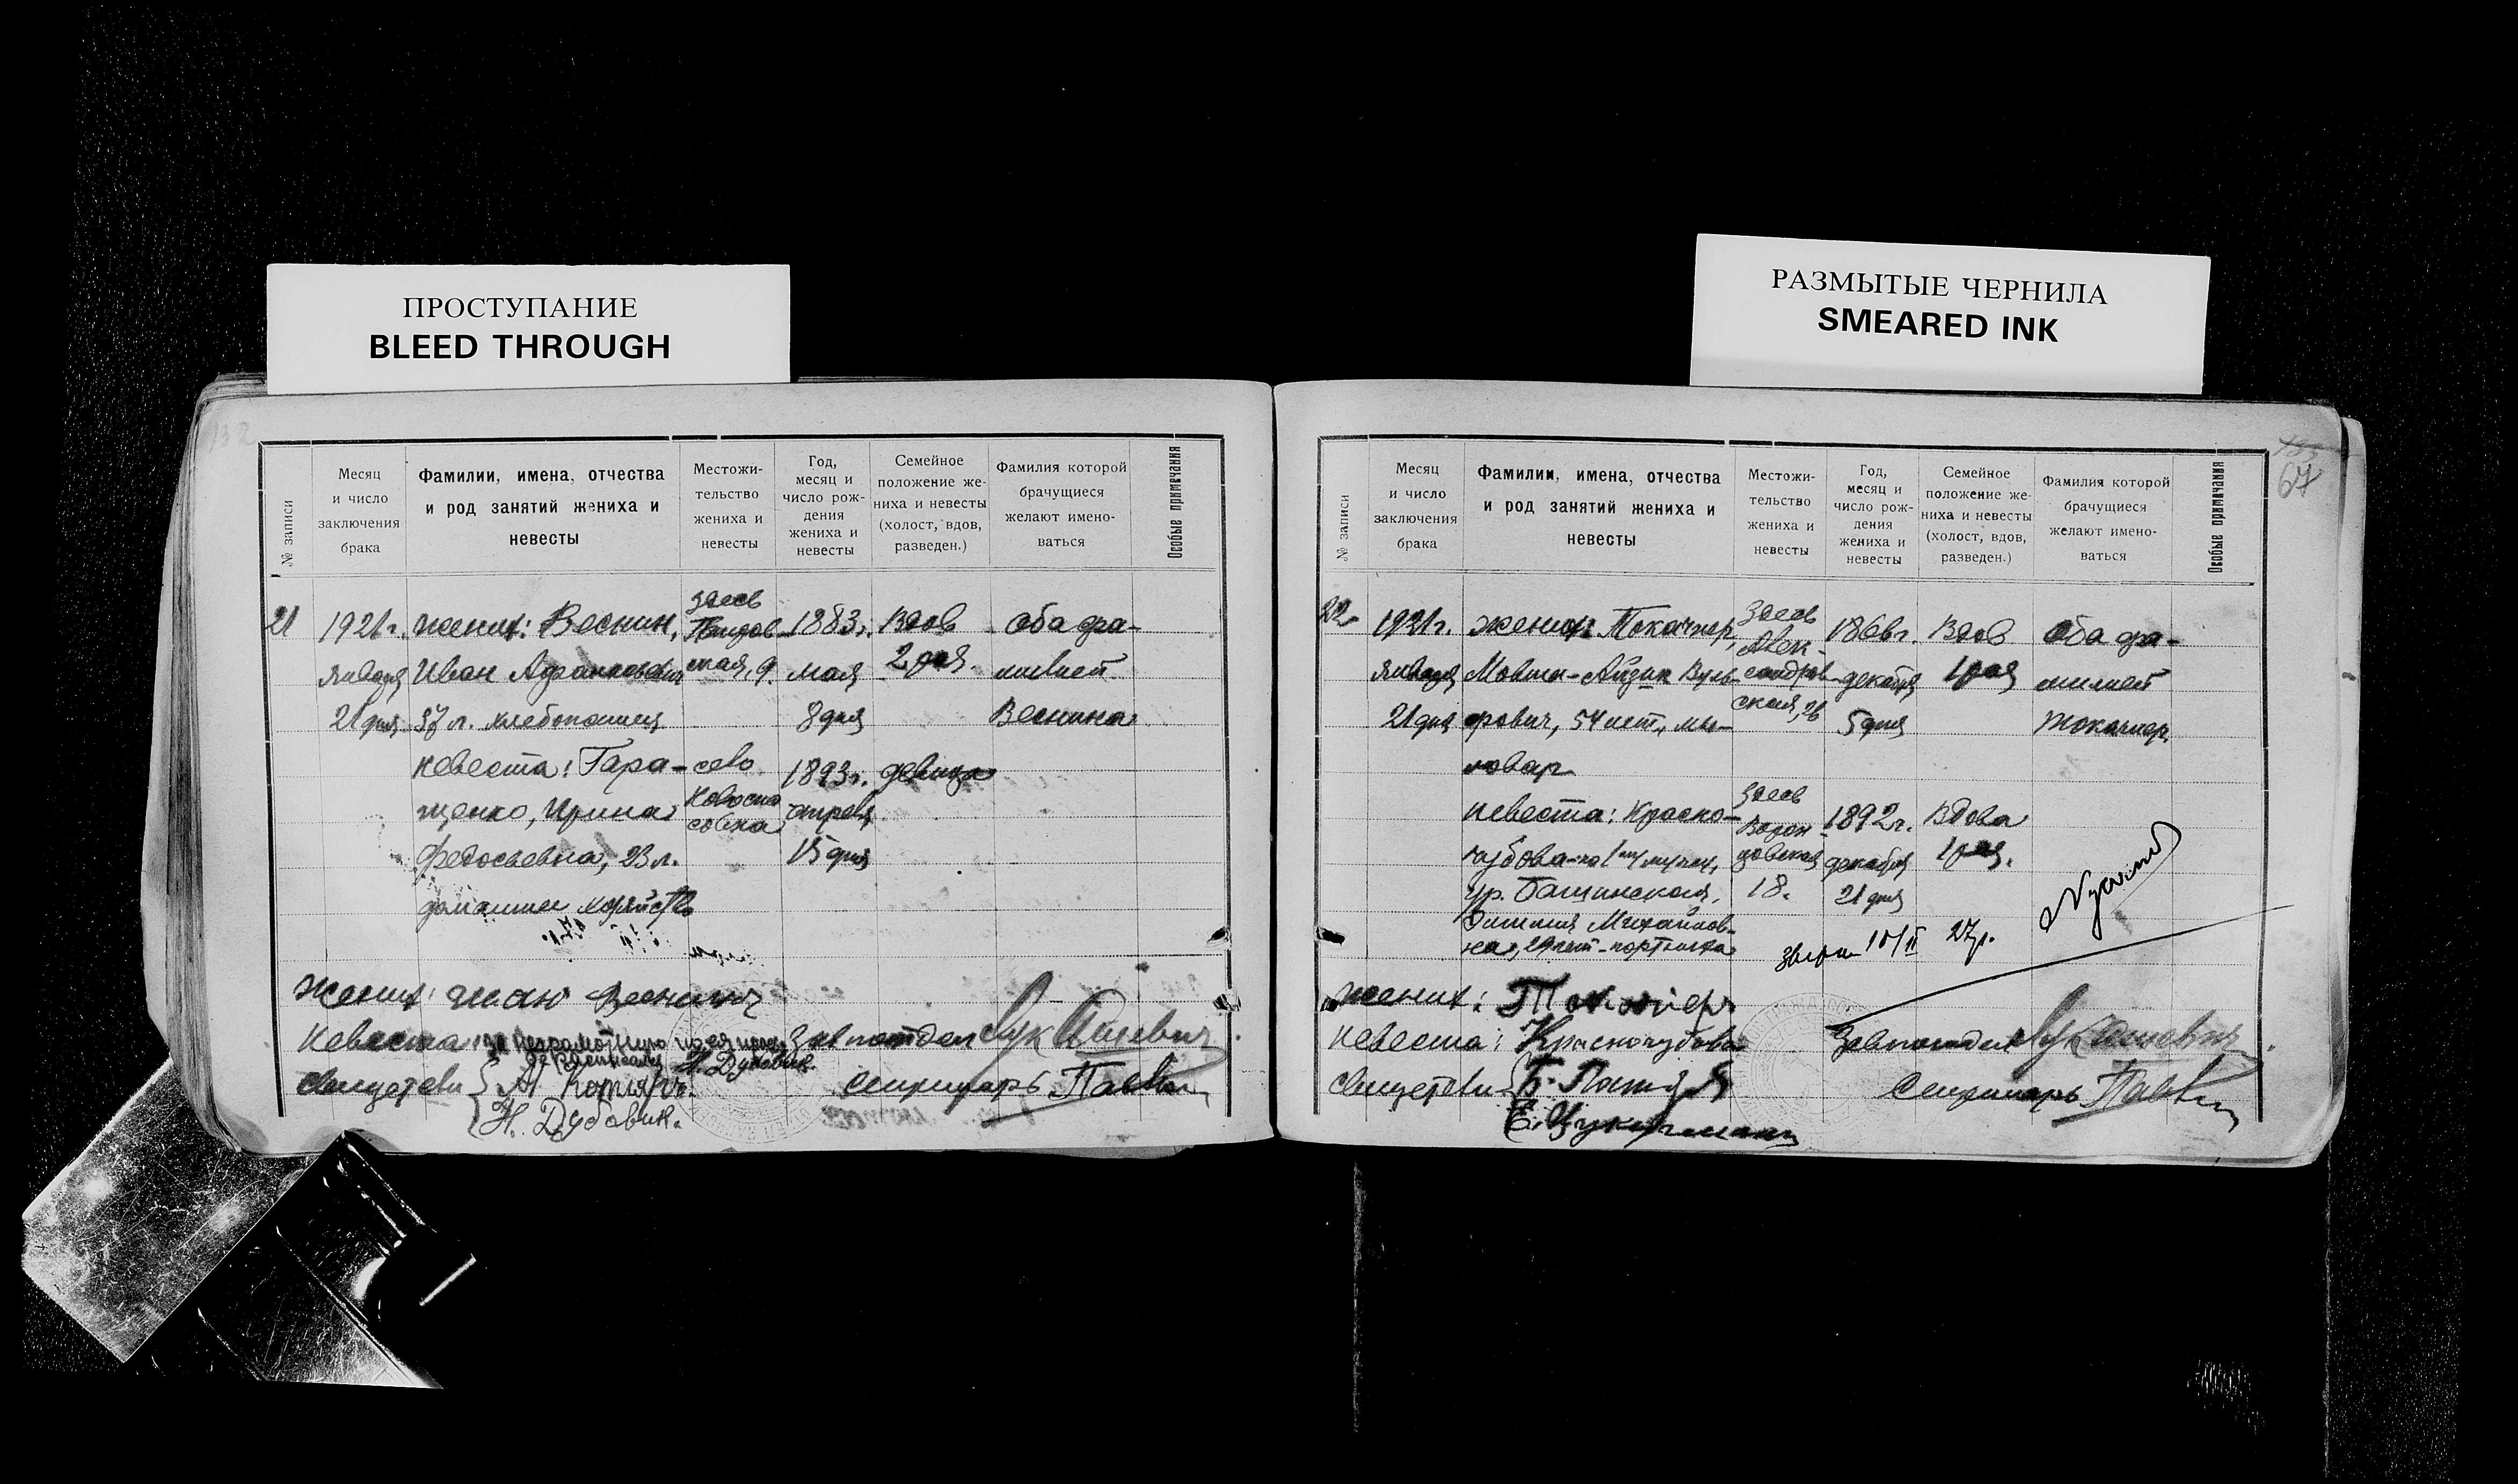 ПРОСТУПАНИЕ
BLEED THROUGH
РАЗМЫТЫЕ ЧЕРНИЛА
SMEARED INK
132
№ записи
Месяц
и число
заключения
брака
Фамилии, имена, отчества
и род занятий жениха и
невесты
Местожи-
тельство
жениха и
невесты
Год,
месяц и
число рож-
дения
жениха и
невесты
Семейное
положение же-
ниха и невесты
(холост, вдов,
разведен.)
Фамилия которой
брачущиеся
желают имено-
ваться
Особые примечания
21
1921 г.
января
21 дня
жених: Веснин,
Иван
37 л. хлебопашец
невеста: Гара-
щенко, Ирина
Федосьевна, 23 л.
домашнее хозяйство
здесь
ская, 9.
село
Новоспа
совка
1883 г.
мая
8 дня
1893 г.
апреля
15 дня
Вдов
2 раз.
девица
Оба фа-
милией
Веснина
Жених:
Невеста: за неграмотную по ея прось
расписался Н. Дубовик.
Завпотдел Лукашевич
Свидетели
Н. Дубовик.
Секретарь
67
№ записи
Месяц
и число
заключения
брака
Фамилии, имена, отчества
и род занятий жениха и
невесты
Местожи-
тельство
жениха и
невесты
Год,
месяц и
число рож-
дения
жениха и
невесты
Семейное
положение же-
ниха и невесты
(холост, вдов,
разведен.)
Фамилия которой
брачущиеся
желают имено-
ваться
Особые примечания
22
1921 г.
января
21 дня
жених: Токачнер,
Мовша-Айзик Вуль-
фович, 54 лет, мы-
ловар
невеста: Красно-
кубова-по 1му мужу,
ур. Башинская,
Михайлов-
на, 29 лет - портниха
здесь
Алек-
сандров-
ская, 26
здесь
Ворон
цовская
18.
1866 г.
декабря
5 дня
1892 г.
декабря
21 дня
Вдов
1 раз
Вдова
1 раз.
Оба фа-
милией
Токачнер.
10/II 27 г.
Жених:
Невеста: Краснокубова
Завпотдел Лукашевич
Свидетели
Секретарь